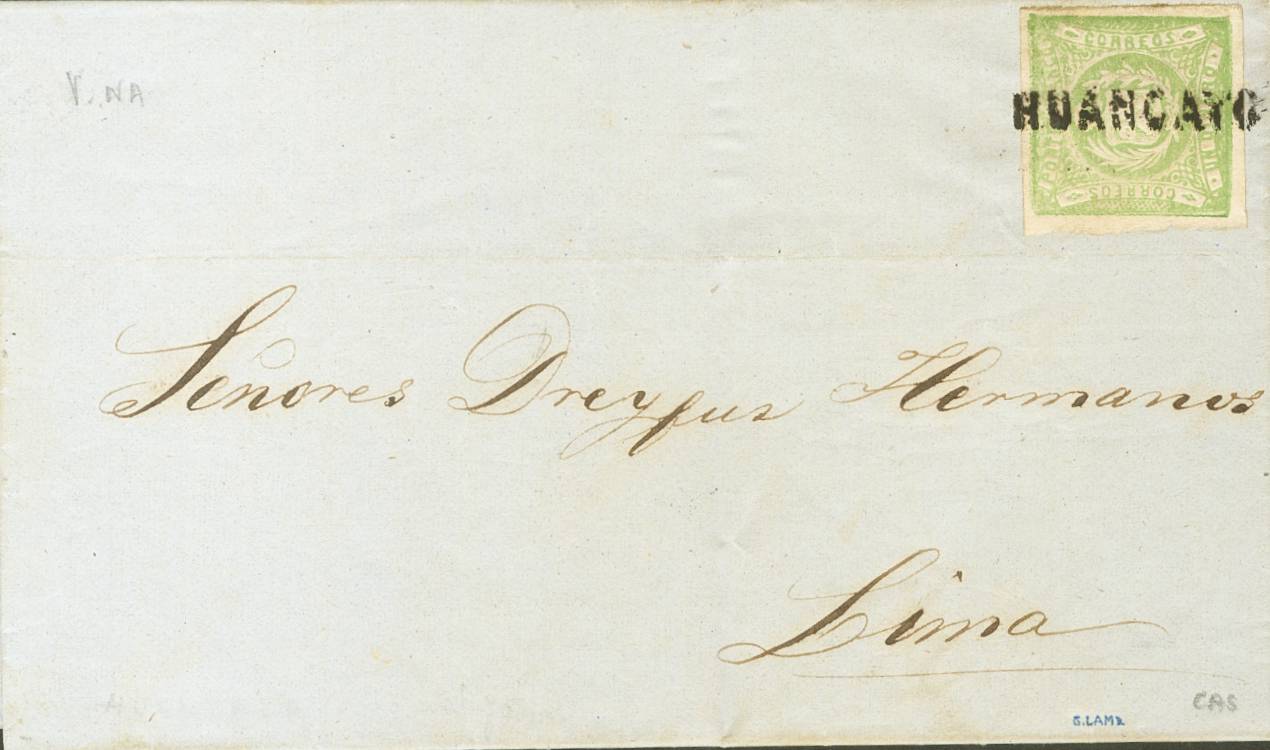 CORREOS
UN DINERO
CORREOS
HUANCAYO
V. NA
Señores Dreyfus Hermanos
Lima
CAS